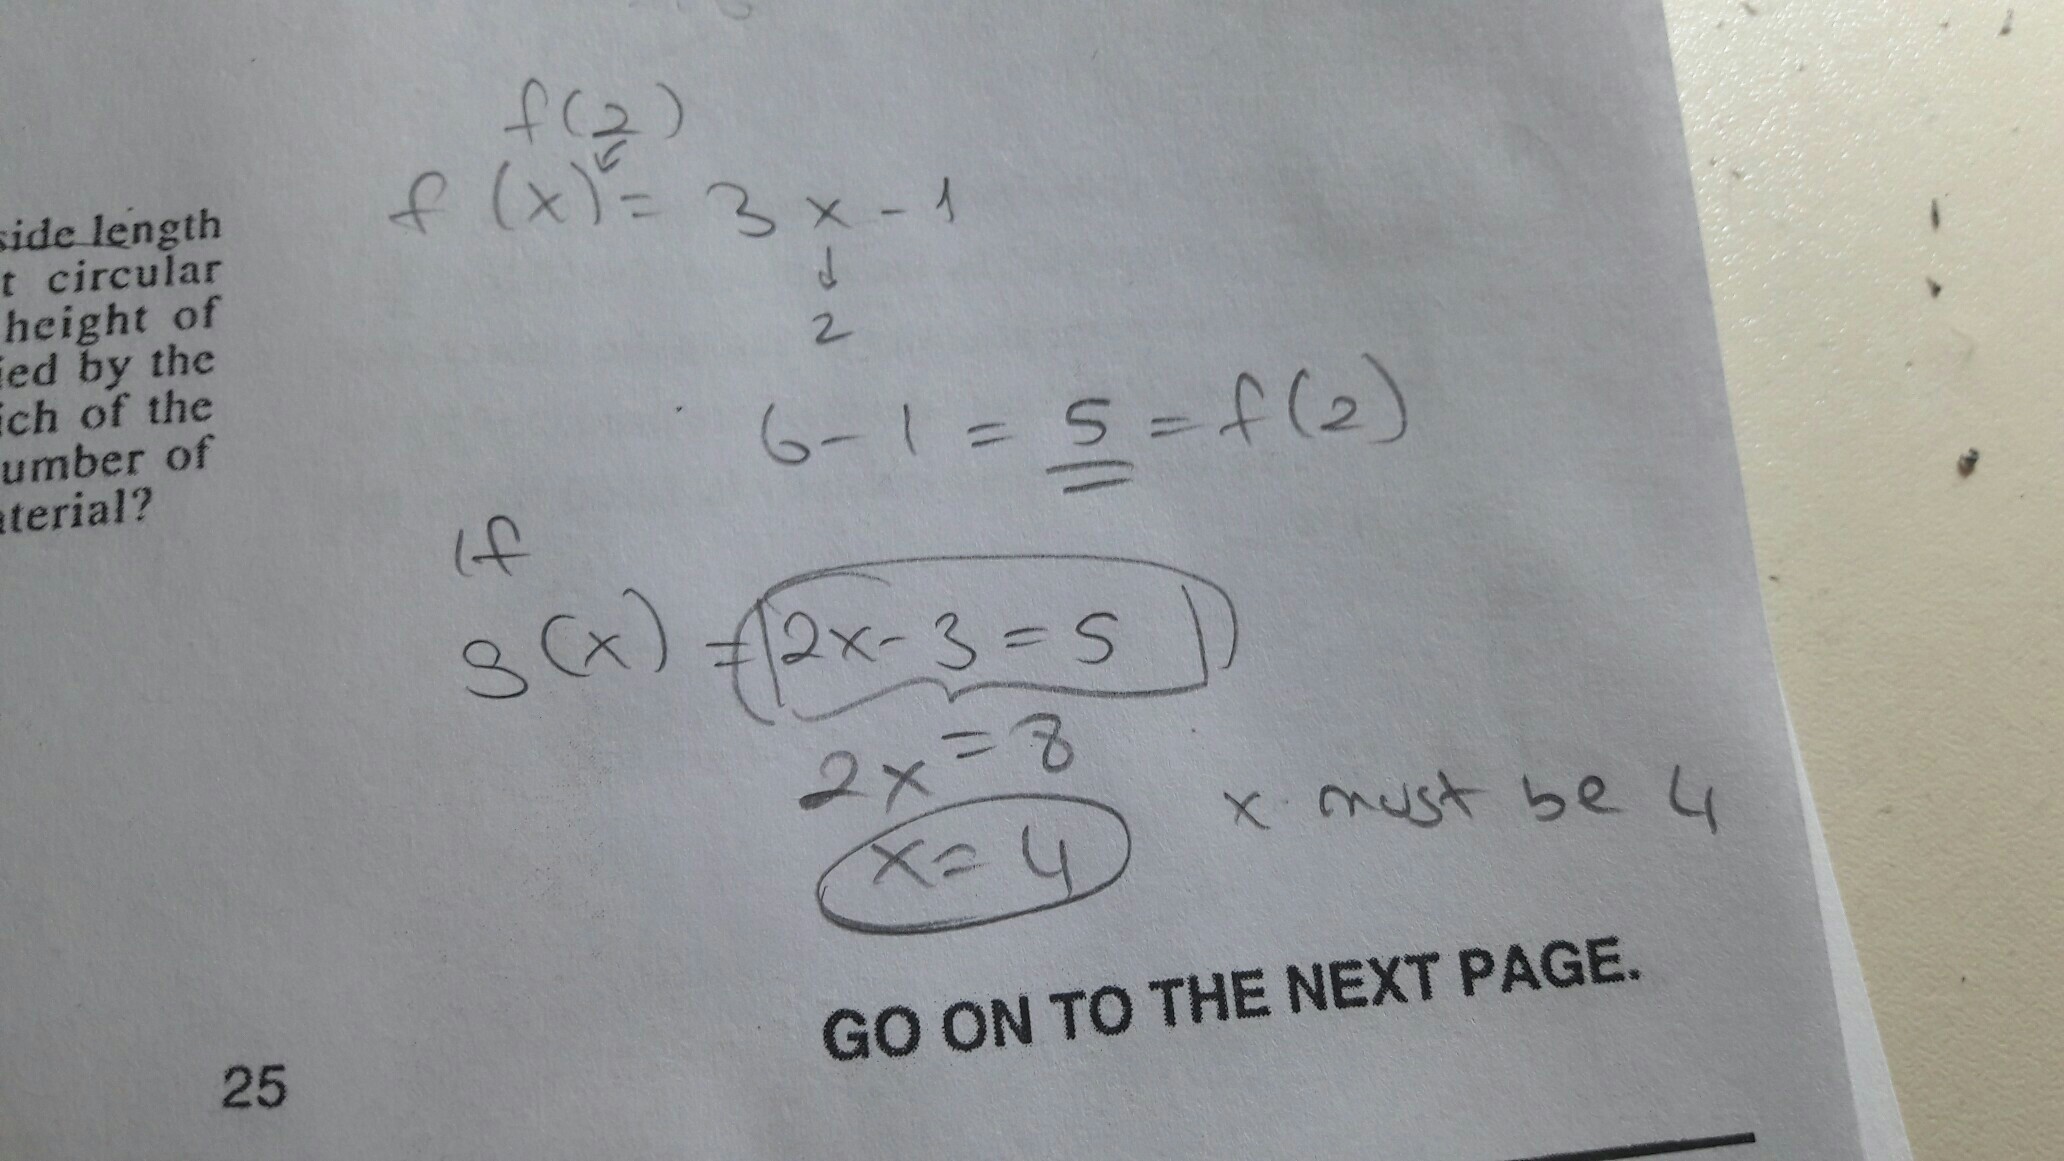 side length
t circular
height of
ied by the
ich of the
umber of
aterial?
f(2)
f(x) = 3x - 1
↓
2
6 - 1 = 5 = f(2)
If
g(x) = 2x - 3 = 5
2x = 8
x = 4
x must be 4
GO ON TO THE NEXT PAGE.
25